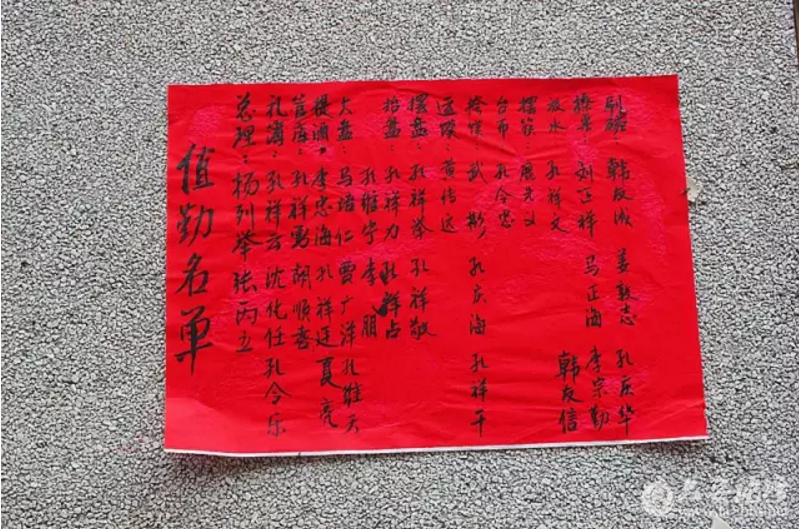 值勤名单
总理：杨列举 张丙五
礼簿：孔祥云 沈化任 孔令乐
管库：孔祥勇 胡顺喜
提酒：李忠海 孔祥廷 夏亮
大盘：马培仁 贾广洋 孔维天
孔维宁 李朋
抬盘：孔祥力 孔祥占
摆盘：孔祥举 孔祥敬
送馍：黄传远
武彬 孔庆海 孔祥干
台布 孔令忠
摆筷：
孔祥文
刘正祥 马正海 李宗勤
刷碗：韩友成 姜敦志 孔庆华
韩友信